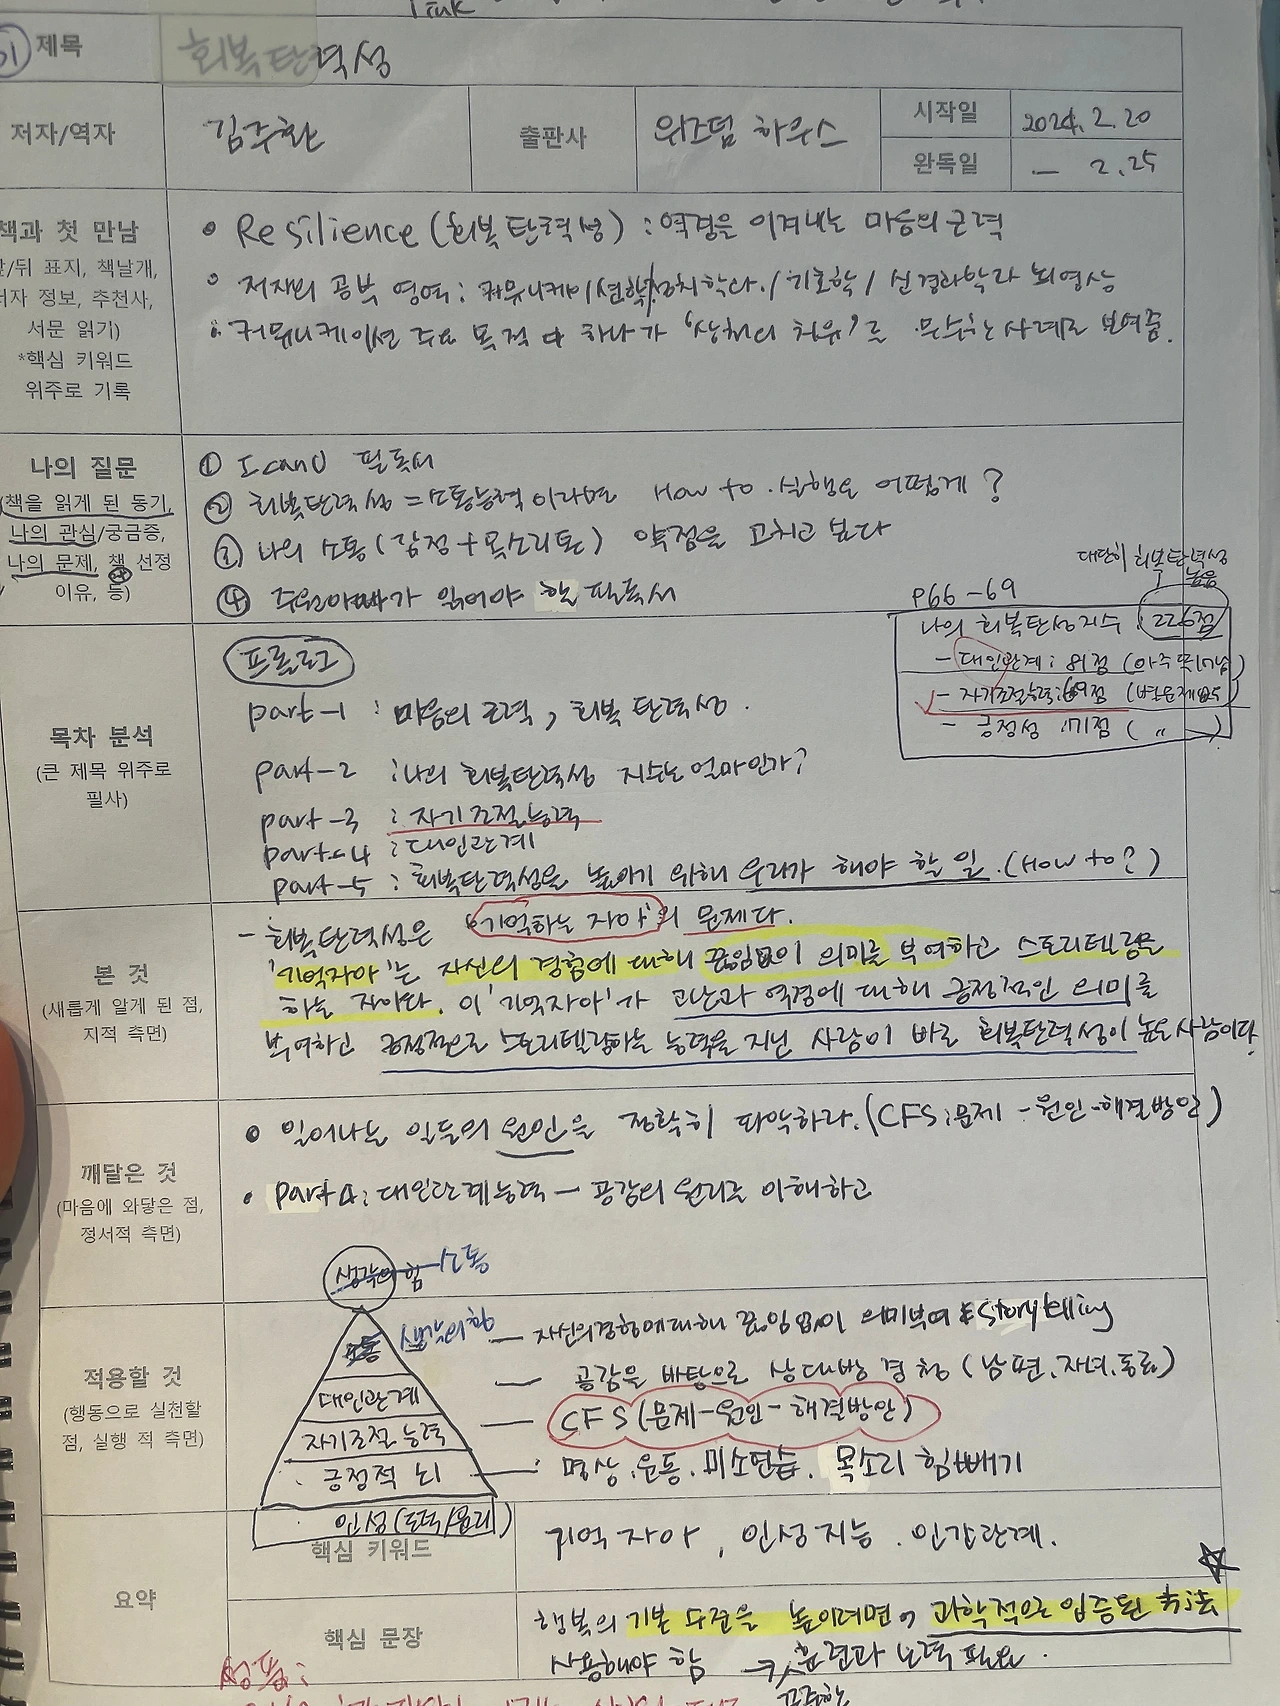 제목 회복탄력성
저자/역자 김주환 출판사 위즈덤 하우스 시작일 2024. 2. 20
완독일 — 2. 25
책과 첫 만남
앞/뒤 표지, 책날개,
저자 정보, 추천사,
서문 읽기)
*핵심 키워드
위주로 기록
• Resilience (회복탄력성) : 역경을 이겨내는 마음의 근력
• 저자의 공부 영역 : 커뮤니케이션학/정치학과/기호학/신경과학과 뇌영상
• 커뮤니케이션 주요 목적 中 하나가 '상처의 치유'로 무수한 사례로 보여줌.
나의 질문
(책을 읽게 된 동기,
나의 관심/궁금증,
나의 문제, 책 선정
이유, 등)
① IcanU 필독서
② 회복탄력성 = 소통능력이라면 How to 실행은 어떻게?
③ 나의 소통(감정+목소리톤) 약점을 고치고 본다
④ 주원아빠가 읽어야 할 필독서
대단히 회복탄력성
높음
p66-69
나의 회복탄성지수 : 226점
- 대인관계 : 81점 (아주 뛰어남)
- 자기조절능력 : 69점
- 긍정성 : 71점 ( " )
목차 분석
(큰 제목 위주로
필사)
프롤로그
part-1 : 마음의 근력, 회복탄력성.
part-2 : 나의 회복탄력성 지수는 얼마인가?
part-3 : 자기조절능력
part-4 : 대인관계
part-5 : 회복탄력성을 높이기 위해 우리가 해야 할 일. (How to?)
본 것
(새롭게 알게 된 점,
지적 측면)
- 회복탄력성은 '기억하는 자아'의 문제다.
'기억자아'는 자신의 경험에 대해 끊임없이 의미를 부여하고 스토리텔링을
하는 자아다. 이 '기억자아'가 고난과 역경에 대해 긍정적인 의미를
부여하고 긍정적으로 스토리텔링하는 능력을 지닌 사람이 바로 회복탄력성이 높은 사람이다.
깨달은 것
(마음에 와닿은 점,
정서적 측면)
• 일어나는 일들의 원인을 정확히 파악하라. (CFS : 문제-원인-해결방안)
• part 4 : 대인관계능력 - 공감의 원리로 이해하고
생각의 힘 소통
적용할 것
(행동으로 실천할
점, 실행 적 측면)
소통 생각의 힘 — 자신의 경험에 대해 끊임없이 의미부여 & Storytelling
대인관계 — 공감을 바탕으로 상대방 경청 (남편, 자녀, 동료)
자기조절능력 — CFS (문제-원인-해결방안)
긍정적 뇌 — 명상, 운동, 미소연습, 목소리 힘빼기
인성 (도덕/윤리)
요약
핵심 키워드 기억자아, 인성지능, 인간관계.
핵심 문장 행복의 기본 수준을 높이려면 과학적으로 입증된 방법
사용해야 함 → 훈련과 노력 필요.
꾸준한